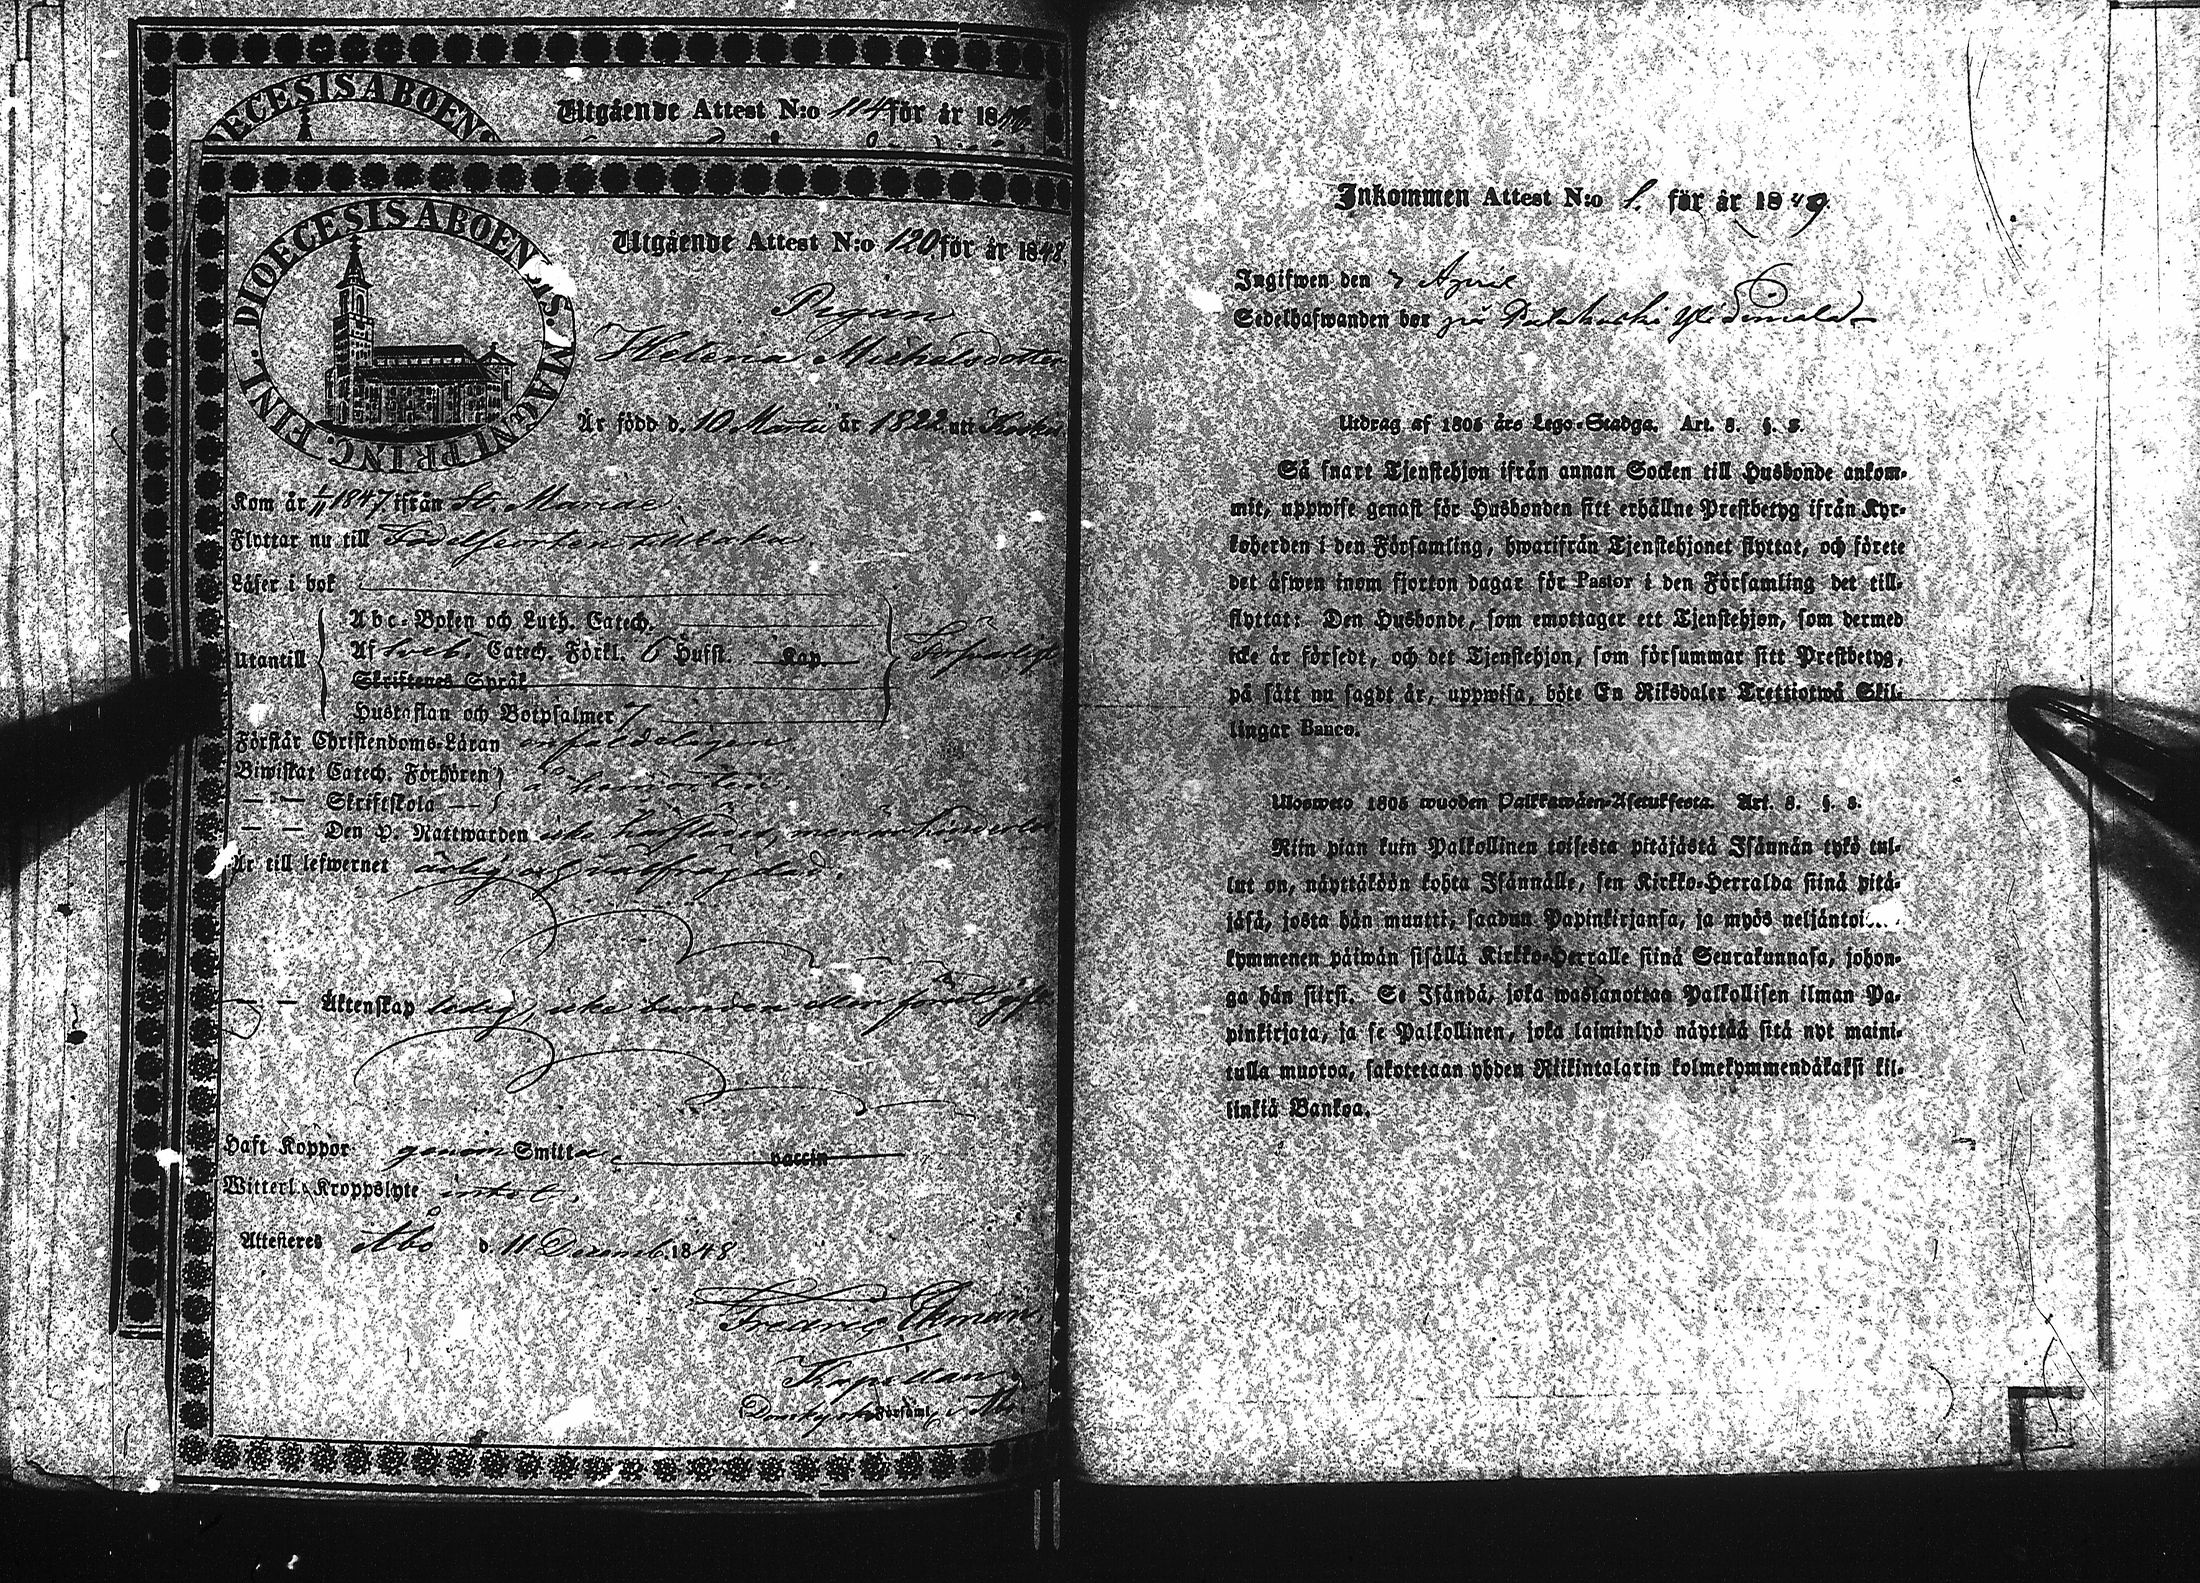 DIOECESIS ABOENS
Utgående Attest N:o 114 för år 1848
DIOECESIS ABOENSIS. MAGNI PRINC. FINL.
Utgående Attest N:o 120 för år 1848.
Pigan
Helena Michelsdotter
Är född d. 10 Martii år 1822 uti
Kom år 1/11 1847 ifrån St. Mariae.
Flyttar nu till Födelseorten tillbaka
Läser i bok
Utantill
Abc-Boken och Luth. Catech.
Af Sveb. Catech. Förkl. 6 Hufst. Kap.
Skriftenes Språk
Hustaflan och Botpsalmer 7
Förstår Christendoms-Läran enfaldeligen
Biwistat Catech. Förhören
— — Skriftskola —
— — Den H. Nattwarden icke
Är till lefwernet ärlig och välfrägdad.
— — Äktenskap ledig, icke bunden eller
Haft Koppor genom Smitta vaccin
Witterl. Kroppslyte intet.
Attesteres Åbo d. 11 Decemb. 1848.
Fredric Ekman
Kapellan
Domkyrko Församl. i Åbo.
Inkommen Attest N:o 1. för år 1849.
Ingifwen den 7 April
Sedelhafwanden bor på
Utdrag af 1805 års Lego-Stadga. Art. 8. §. 8.
Så snart Tjenstehjon ifrån annan Socken till Husbonde ankom-
mit, uppwise genast för Husbonden sitt erhållne Prestbetyg ifrån Kyr-
koherden i den Församling, hwarifrån Tjenstehjonet flyttat, och förete
det äfwen inom fjorton dagar för Pastor i den Församling det till-
flyttat: Den Husbonde, som emottager ett Tjenstehjon, som dermed
icke är försedt, och det Tjenstehjon, som försummar sitt Prestbetyg,
på sätt nu sagdt är, uppwisa, böte En Riksdaler Trettiotwå Skil-
lingar Banco.
Uloswero 1805 wuoden Palkkawäen-Asetuksesta. Art. 8. §. 8.
Niin pian kuin Palkollinen toisesta pitäjästä Isännän tykö tul-
lut on, näyttäköön kohta Isännälle, sen Kirkko-Herralda siinä pitä-
jäsä, josta hän muutti, saadun Papinkirjansa, ja myös neljäntoi
kymmenen päiwän sisällä Kirkko-Herralle siinä Seurakunnasa, johon-
ga hän siirsi. Se Isändä, joka wastanottaa Palkollisen ilman Pa-
pinkirjata, ja se Palkollinen, joka laiminlyö näyttää sitä nyt maini-
tulla muotoa, sakotetaan yhden Riikintalarin kolmekymmendäkaksi kil-
linkiä Bankoa.